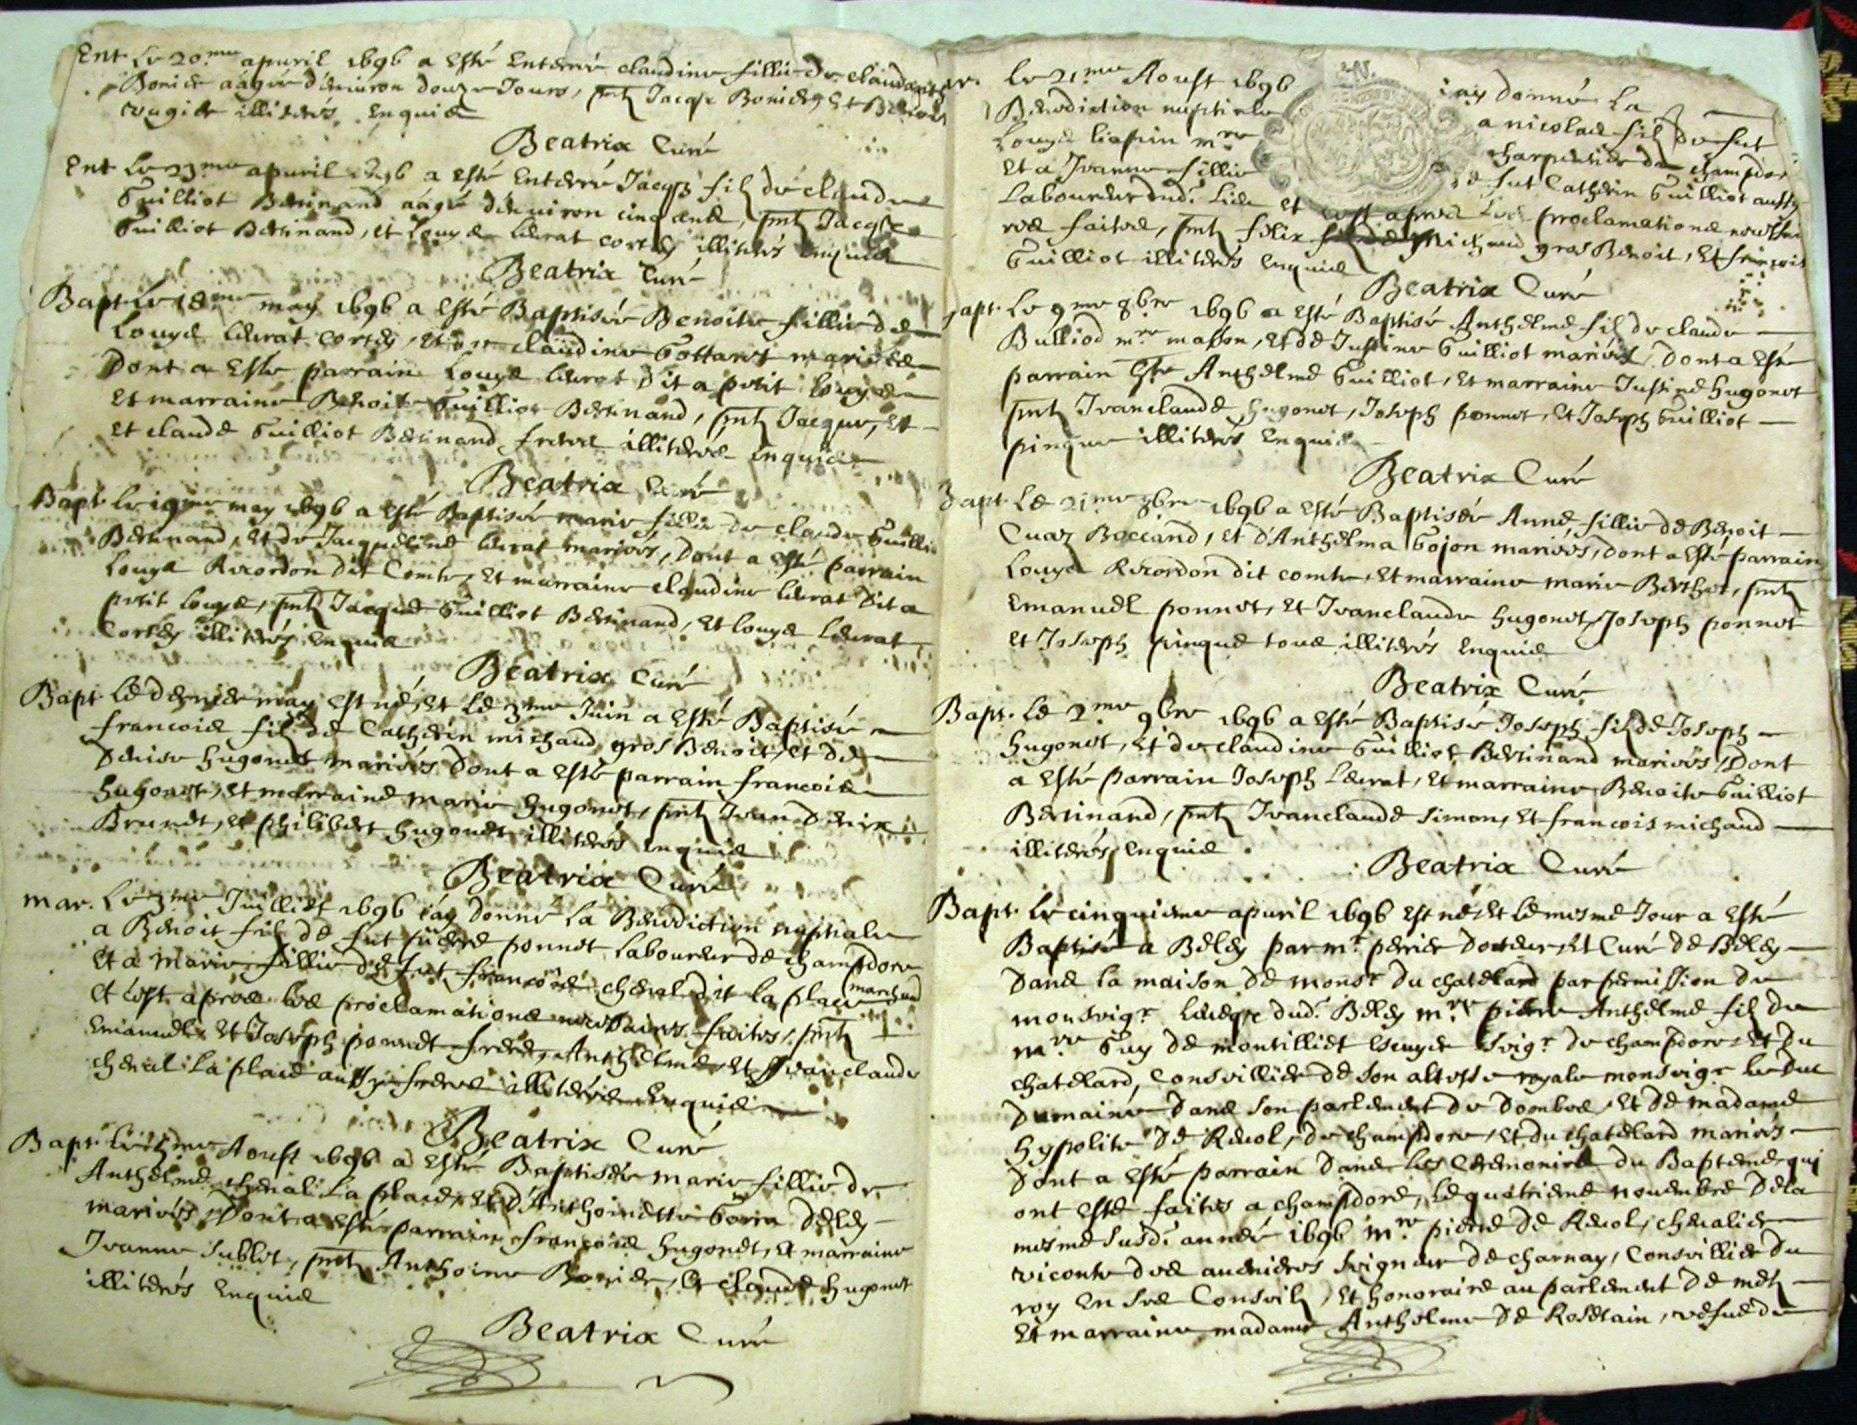 Ent. Le 20.me apuril 1696 a esté enterré claudine fillie de claude
Bonier aagée d'enuiron douze Jours, pntz Jacqe Bonier, et Benoit
rougier illiterés enquis
Beatrix Curé
Ent Le 23.me apuril 1696 a esté enterré Jacqs filz de claude
Guilliot Bertinand aagé denuiron cinq ans, pntz Jacqs
Guilliot Bertinand, et Louys Leurat illiterés enquis
Beatrix Curé
Bapt. Le 18me may 1696 a esté Baptisée Benoite fillie de
Louys Leurat et de claudine mariés
Dont a esté parrain Louys Leurat dit a petit Louys
et marraine Benoite Guilliot Bertinand, pntz Jacques, et
et claude Guilliot Bertinand freres illiterés enquis
Beatrix Curé
Bapt. Le 19me may 1696 a esté Baptisée marie fillie de claude Guilliot
Bertinand, et de Jacqueline Leurat mariés, Dont a esté parrain
Louys Reuordon dit Comte, et marraine claudine Leurat dit a
petit Louys, pntz Jacques Guilliot Bertinand, et Louys Leurat
illiterés enquis
Beatrix Curé
Bapt. Le dernier may est né, et Le 3me Juin a esté Baptisé
francois filz de Catherin michaud gros Benoit, et de
Denise hugonet mariés Dont a esté parrain francois
hugonet, et marraine marie hugonet, pntz Jean
Brunet, et philibert hugonet illiterés enquis
Beatrix Curé
mar. Le 3me Juilliet 1696 iay donné La Benediction nuptiale
a Benoit filz de fut pierre ponnet Laboureur de champdore
et a Marie fillie de fut francois cheual dit la place marchand
et cest apres Les proclamations necessaires faites, pntz
emanuel, et Joseph ponnet freres, Anthelme, et Jeanclaude
cheual La place aussy freres illiterés enquis
Beatrix Curé
Bapt. Le Aoust 1696 a esté Baptisée marie fillie de
Anthelme cheual La place, et d'Anthoinette
mariés, Dont a esté parrain francois hugonet, et marraine
Jeanne Sublet, pntz Anthoine Bonier, et claude hugonet
illiterés enquis
Beatrix Curé
Le 21me Aoust 1696 iay donné La
Benediction nuptiale a nicolas filz de fut
Louys mre charpentier de champdore
et a Jeanne fillie de fut Catherin Guilliot aussy
Laboureur dud. Lieu et cest apres Les proclamations necessaires
faites, pntz felix michaud gros Benoit, et francois
Guilliot illiterés enquis
Beatrix Curé
Bapt. Le 9me 8bre 1696 a esté Baptisé Anthelme filz de claude
Bulliod mre masson, et de Justine Guilliot mariés, Dont a esté
parrain Anthelme Guilliot, et marraine Justine hugonet
pntz Jeanclaude hugonet, Joseph ponnet, et Joseph Guilliot
pinque illiterés enquis
Beatrix Curé
Bapt. Le 21me 8bre 1696 a esté Baptisée Anne fillie de Benoit
Cuaz Baccand, et d'Anthelma Gojon mariés, Dont a esté parrain
Louys Reuordon dit comte, et marraine marie Berthet, pntz
Emanuel ponnet, et Jeanclaude hugonet, Joseph ponnet
et Joseph pinque tous illiterés enquis
Beatrix Curé
Bapt. Le 2me 9bre 1696 a esté Baptisé Joseph filz de Joseph
hugonet, et de claudine Guilliot Bertinand mariés, Dont
a esté parrain Joseph Leurat, et marraine Benoite Guilliot
Bertinand, pntz Jeanclaude Simon, et francois michaud
illiterés, enquis
Beatrix Curé
Bapt. Le cinquieme apuril 1696 est né, et Le mesme Jour a esté
Baptisé a Beley par mr perier Docteur, et Curé de Beley
Dans la maison de monsr du chatelard par permission de
monseigr Leuesqe dud. Beley mre pierre Anthelme filz de
mre Guy de montilliet escuyer seigr de champdore, et du
chatelard, Conseillier de son altesse royale monseigr Le duc
Dumaine Dans son parlement de Dombes, et de madame
hypolite de Reuol, de champdore, et du chatelard mariés
Dont a esté parrain Dans Les Ceremonies du Bapteme qui
ont esté faites a champdore, Le quatrieme nouembre de la
mesme susd. année 1696 mre pierre de Reuol, cheualier
viconte des auenieres seigneur de charnay, Conseillier du
roy en ses Conseilz, et honoraire au parlement de metz
et marraine madame Anthelme de Rosetain, vefue de